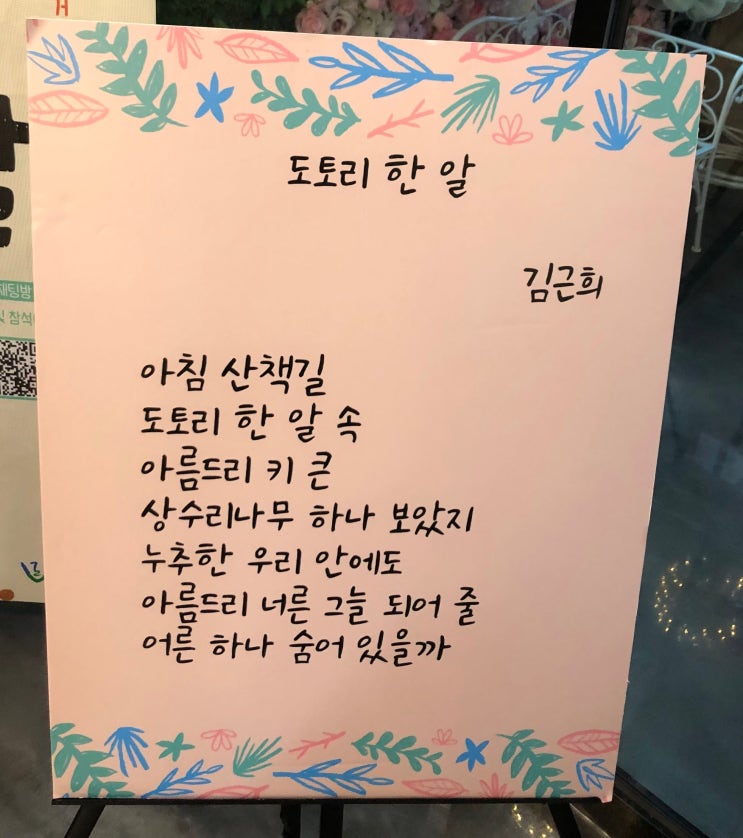 도토리 한 알
김근희
아침 산책길
도토리 한 알 속
아름드리 키 큰
상수리나무 하나 보았지
누추한 우리 안에도
아름드리 너른 그늘 되어 줄
어른 하나 숨어 있을까
채팅방